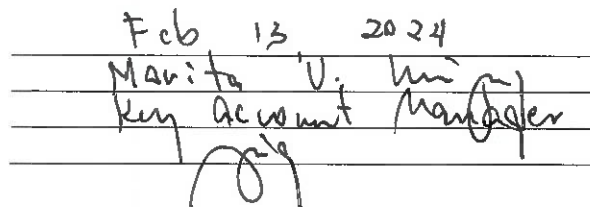 Feb 13 2024
Marita V.
Key Account Manager